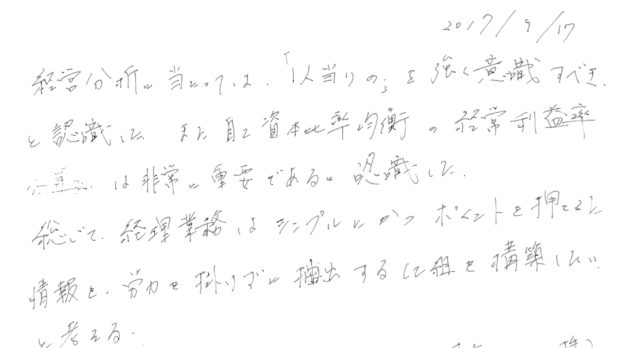 2017/9/17
経営分析に当たっては、「1人当りの」を強く意識すべき
と認識した。また自己資本比率均衡の経常利益率
は非常に重要であると認識した。
総じて、経理業務はシンプルにかつポイントを押さえた
情報を、労力を掛けずに抽出する仕組を構築したい
と考える。